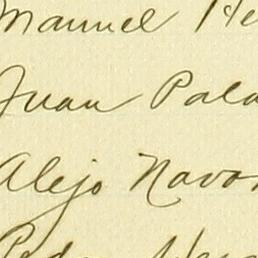 Manuel He
Juan Pala
Alejo Navar
Pedro